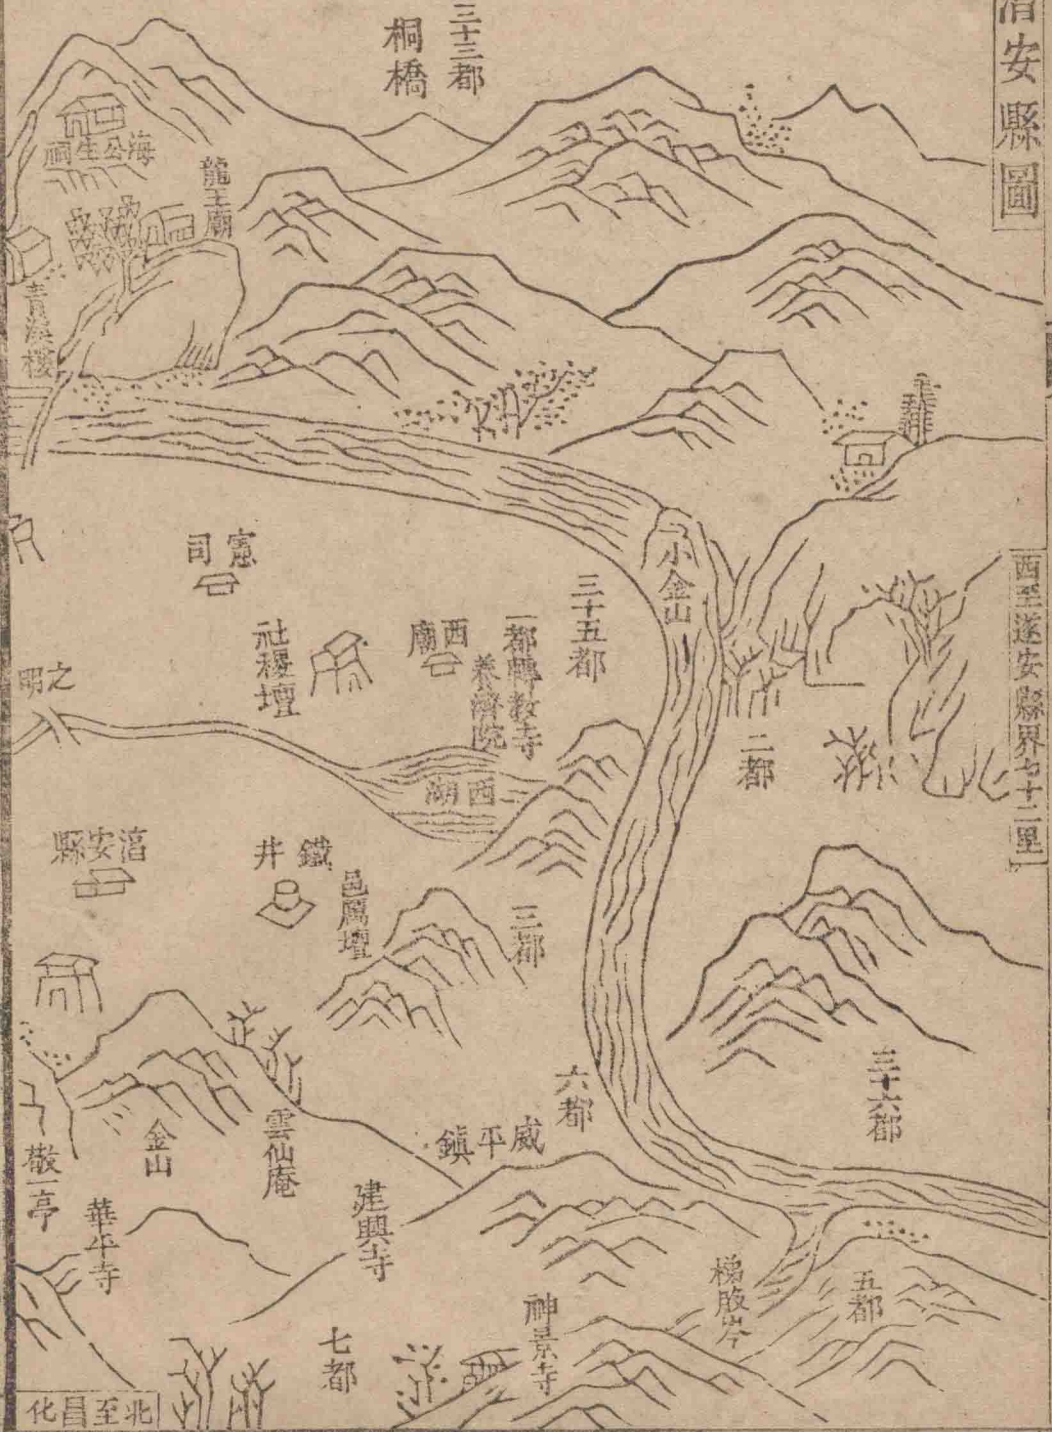 淯安縣圖
西至遂安縣界七十二里
三十三都
桐橋
海公生祠
龍王廟
青溪樓
小金山
憲司
三十五都
一都轉教寺
養濟院
西廟
社稷壇
之明
西湖
二都
淯安縣
鐵井
邑厲壇
三都
三十六都
六都
威平鎮
雲仙庵
金山
敬一亭
華平寺
建興寺
五都
神景寺
七都
北至昌化